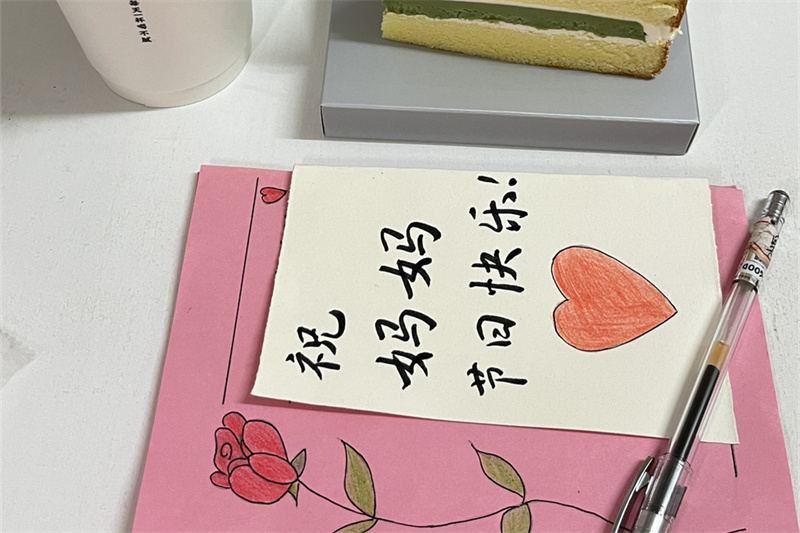 祝
妈妈
节日快乐!